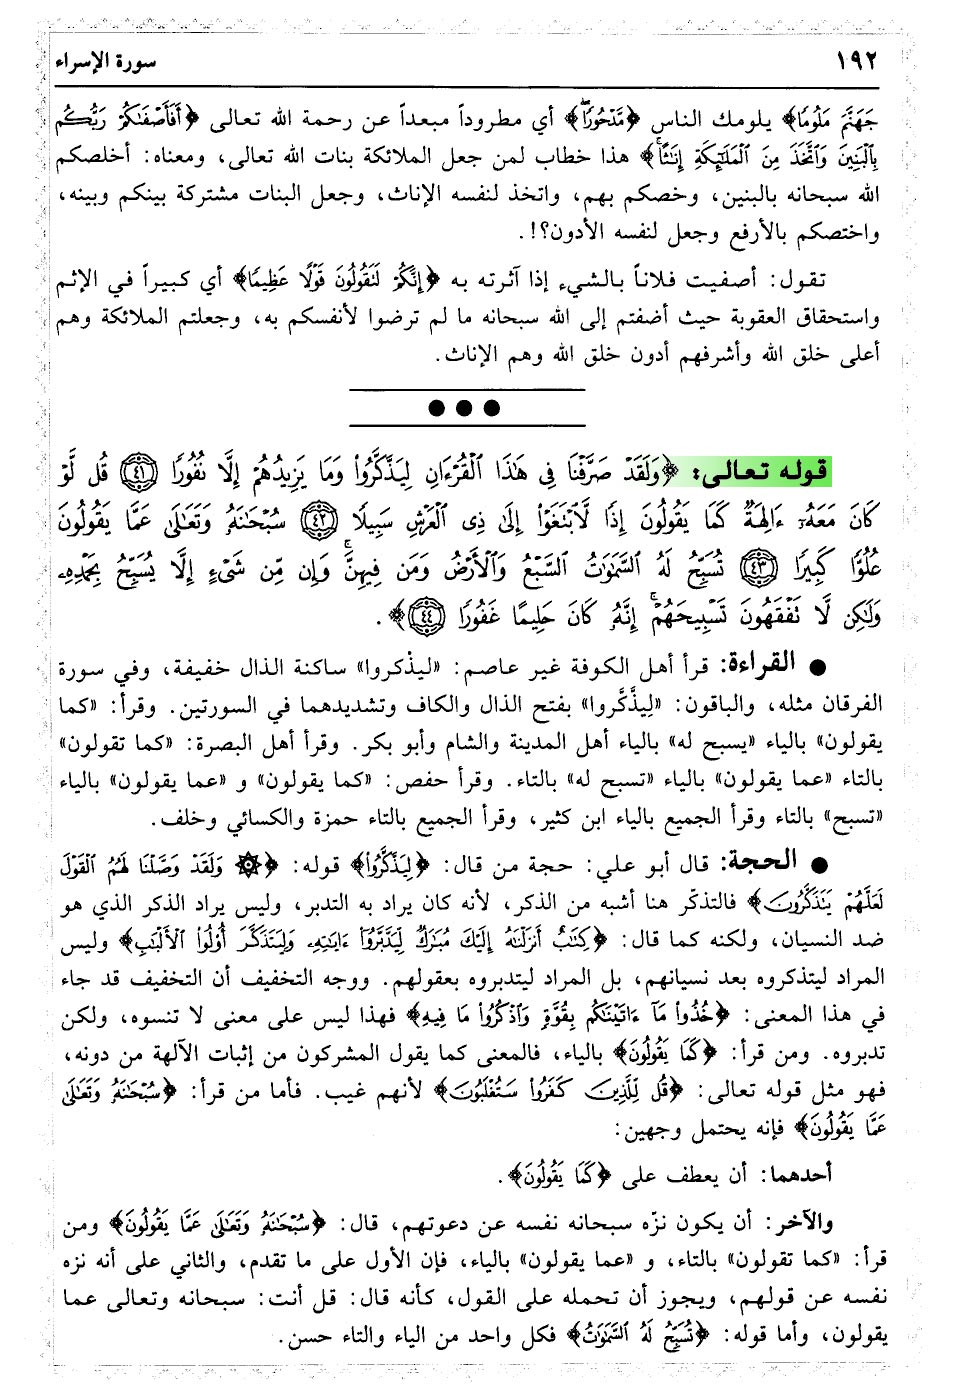 ١٩٢
سورة الإسراء
جَهَنَّمَ مَلُومًا﴾ يلومك الناس ﴿مَّدْحُورًا﴾ أي مطروداً مبعداً عن رحمة الله تعالى ﴿أَفَأَصْفَىٰكُمْ رَبُّكُم
بِالْبَنِينَ وَاتَّخَذَ مِنَ الْمَلَٰٓئِكَةِ إِنَٰثًا﴾ هذا خطاب لمن جعل الملائكة بنات الله تعالى، ومعناه: أخلصكم
الله سبحانه بالبنين، وخصكم بهم، واتخذ لنفسه الإناث، وجعل البنات مشتركة بينكم وبينه،
واختصكم بالأرفع وجعل لنفسه الأدون؟!.
تقول: أصفيت فلاناً بالشيء إذا آثرته به ﴿إِنَّكُمْ لَتَقُولُونَ قَوْلًا عَظِيمًا﴾ أي كبيراً في الإثم
واستحقاق العقوبة حيث أضفتم إلى الله سبحانه ما لم ترضوا لأنفسكم به، وجعلتم الملائكة وهم
أعلى خلق الله وأشرفهم أدون خلق الله وهم الإناث.
قوله تعالى: ﴿وَلَقَدْ صَرَّفْنَا فِى هَٰذَا الْقُرْءَانِ لِيَذَّكَّرُوا۟ وَمَا يَزِيدُهُمْ إِلَّا نُفُورًا ٤١ قُل لَّوْ
كَانَ مَعَهُۥٓ ءَالِهَةٌ كَمَا يَقُولُونَ إِذًا لَّابْتَغَوْا۟ إِلَىٰ ذِى الْعَرْشِ سَبِيلًا ٤٢ سُبْحَٰنَهُۥ وَتَعَٰلَىٰ عَمَّا يَقُولُونَ
عُلُوًّا كَبِيرًا ٤٣ تُسَبِّحُ لَهُ السَّمَٰوَٰتُ السَّبْعُ وَالْأَرْضُ وَمَن فِيهِنَّ وَإِن مِّن شَىْءٍ إِلَّا يُسَبِّحُ بِحَمْدِهِۦ
وَلَٰكِن لَّا تَفْقَهُونَ تَسْبِيحَهُمْ إِنَّهُۥ كَانَ حَلِيمًا غَفُورًا ٤٤﴾.
● القراءة: قرأ أهل الكوفة غير عاصم: «ليذْكروا» ساكنة الذال خفيفة، وفي سورة
الفرقان مثله، والباقون: «لِيذَّكَّروا» بفتح الذال والكاف وتشديدهما في السورتين. وقرأ: «كما
يقولون» بالياء «يسبح له» بالياء أهل المدينة والشام وأبو بكر. وقرأ أهل البصرة: «كما تقولون»
بالتاء «عما يقولون» بالياء «تسبح له» بالتاء. وقرأ حفص: «كما يقولون» و «عما يقولون» بالياء
«تسبح» بالتاء وقرأ الجميع بالياء ابن كثير، وقرأ الجميع بالتاء حمزة والكسائي وخلف.
● الحجة: قال أبو علي: حجة من قال: ﴿لِيَذَّكَّرُوا۟﴾ قوله: ﴿۞ وَلَقَدْ وَصَّلْنَا لَهُمُ الْقَوْلَ
لَعَلَّهُمْ يَتَذَكَّرُونَ﴾ فالتذكّر هنا أشبه من الذكر، لأنه كان يراد به التدبر، وليس يراد الذكر الذي هو
ضد النسيان، ولكنه كما قال: ﴿كِتَٰبٌ أَنزَلْنَٰهُ إِلَيْكَ مُبَٰرَكٌ لِّيَدَّبَّرُوٓا۟ ءَايَٰتِهِۦ وَلِيَتَذَكَّرَ أُو۟لُوا۟ الْأَلْبَٰبِ﴾ وليس
المراد ليتذكروه بعد نسيانهم، بل المراد ليتدبروه بعقولهم. ووجه التخفيف أن التخفيف قد جاء
في هذا المعنى: ﴿خُذُوا۟ مَآ ءَاتَيْنَٰكُم بِقُوَّةٍ وَاذْكُرُوا۟ مَا فِيهِ﴾ فهذا ليس على معنى لا تنسوه، ولكن
تدبروه. ومن قرأ: ﴿كَمَا يَقُولُونَ﴾ بالياء، فالمعنى كما يقول المشركون من إثبات الآلهة من دونه،
فهو مثل قوله تعالى: ﴿قُل لِّلَّذِينَ كَفَرُوا۟ سَتُغْلَبُونَ﴾ لأنهم غيب. فأما من قرأ: ﴿سُبْحَٰنَهُۥ وَتَعَٰلَىٰ
عَمَّا يَقُولُونَ﴾ فإنه يحتمل وجهين:
أحدهما: أن يعطف على ﴿كَمَا يَقُولُونَ﴾.
والآخر: أن يكون نزّه سبحانه نفسه عن دعوتهم، قال: ﴿سُبْحَٰنَهُۥ وَتَعَٰلَىٰ عَمَّا يَقُولُونَ﴾ ومن
قرأ: «كما تقولون» بالتاء، و «عما يقولون» بالياء، فإن الأول على ما تقدم، والثاني على أنه نزه
نفسه عن قولهم، ويجوز أن تحمله على القول، كأنه قال: قل أنت: سبحانه وتعالى عما
يقولون، وأما قوله: ﴿تُسَبِّحُ لَهُ السَّمَٰوَٰتُ﴾ فكل واحد من الياء والتاء حسن.